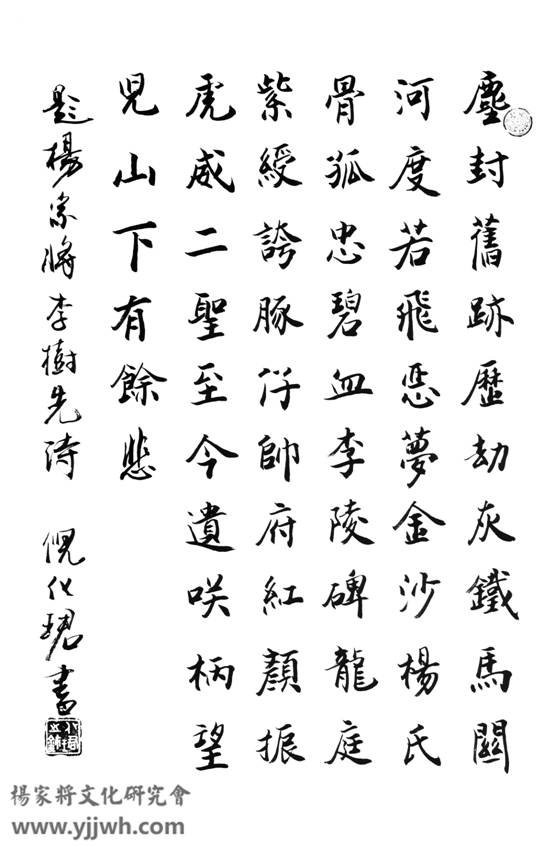 塵封舊跡歷劫灰鐵馬關
河度若飛惡夢金沙楊氏
骨孤忠碧血李陵碑龍庭
紫綬誇豚仔帥府紅顏振
虎威二聖至今遺咲柄望
兒山下有餘悲
題楊家將李樹先詩 倪化珺書
楊家將文化研究會
www.yjjwh.com